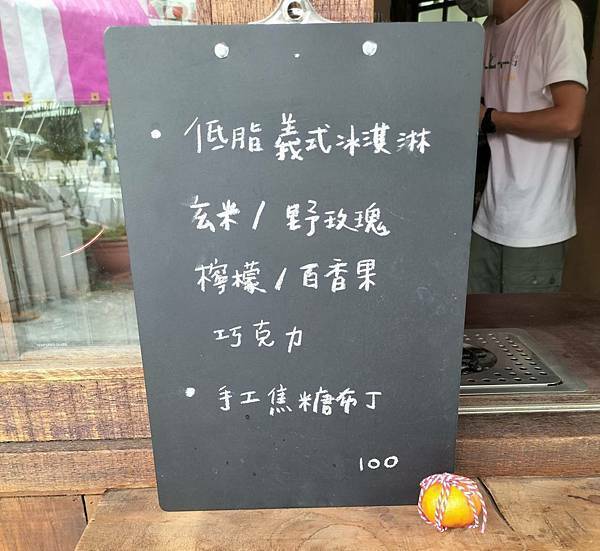 • 低脂義式冰淇淋
玄米 / 野玫瑰
檸檬 / 百香果
巧克力
• 手工焦糖布丁
100